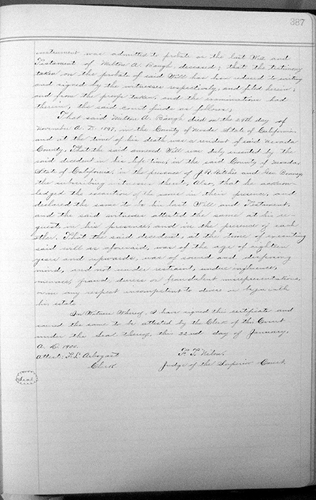 387
instrument was admitted to probate as the last Will and
Testament of Melton A. Baugh, deceased; that the testimony
taken on the probate of said Will has been reduced to writing
and signed by the witnesses respectively, and filed herein;
and from the proofs taken and the examination had
therein, the said Court finds as follows;
That said Melton A. Baugh died on the 25th day of
November A. D. 1899, in the County of State of California
and at the time of his death was a resident of said
County, That the said annexed Will was duly executed by the
said decedent in his life time, in the said County of
State of California, in the presence of J. H. and Geo.
the subscribing witnesses thereto, Also, that he acknow-
ledged the execution of the same in their presence, and
declared the same to be his last Will and Testament,
and the said witnesses attested the same at his re-
quest in his presence and in the presence of each
other, That the said decedent, at the time of executing
said will as aforesaid, was of the age of eighteen
years and upwards, was of sound and disposing
mind, and not under restraint, undue influence,
menaces, fraud, duress or fraudulent misrepresentations,
nor in any respect incompetent to devise or bequeath
his estate
In Witness Whereof, I have signed this certificate and
caused the same to be attested by the Clerk of the Court
under the Seal thereof, the 22nd day of January,
A. D. 1900.
Attest: F. L. F. T. Nilon
Clerk Judge of the Superior Court
Seal